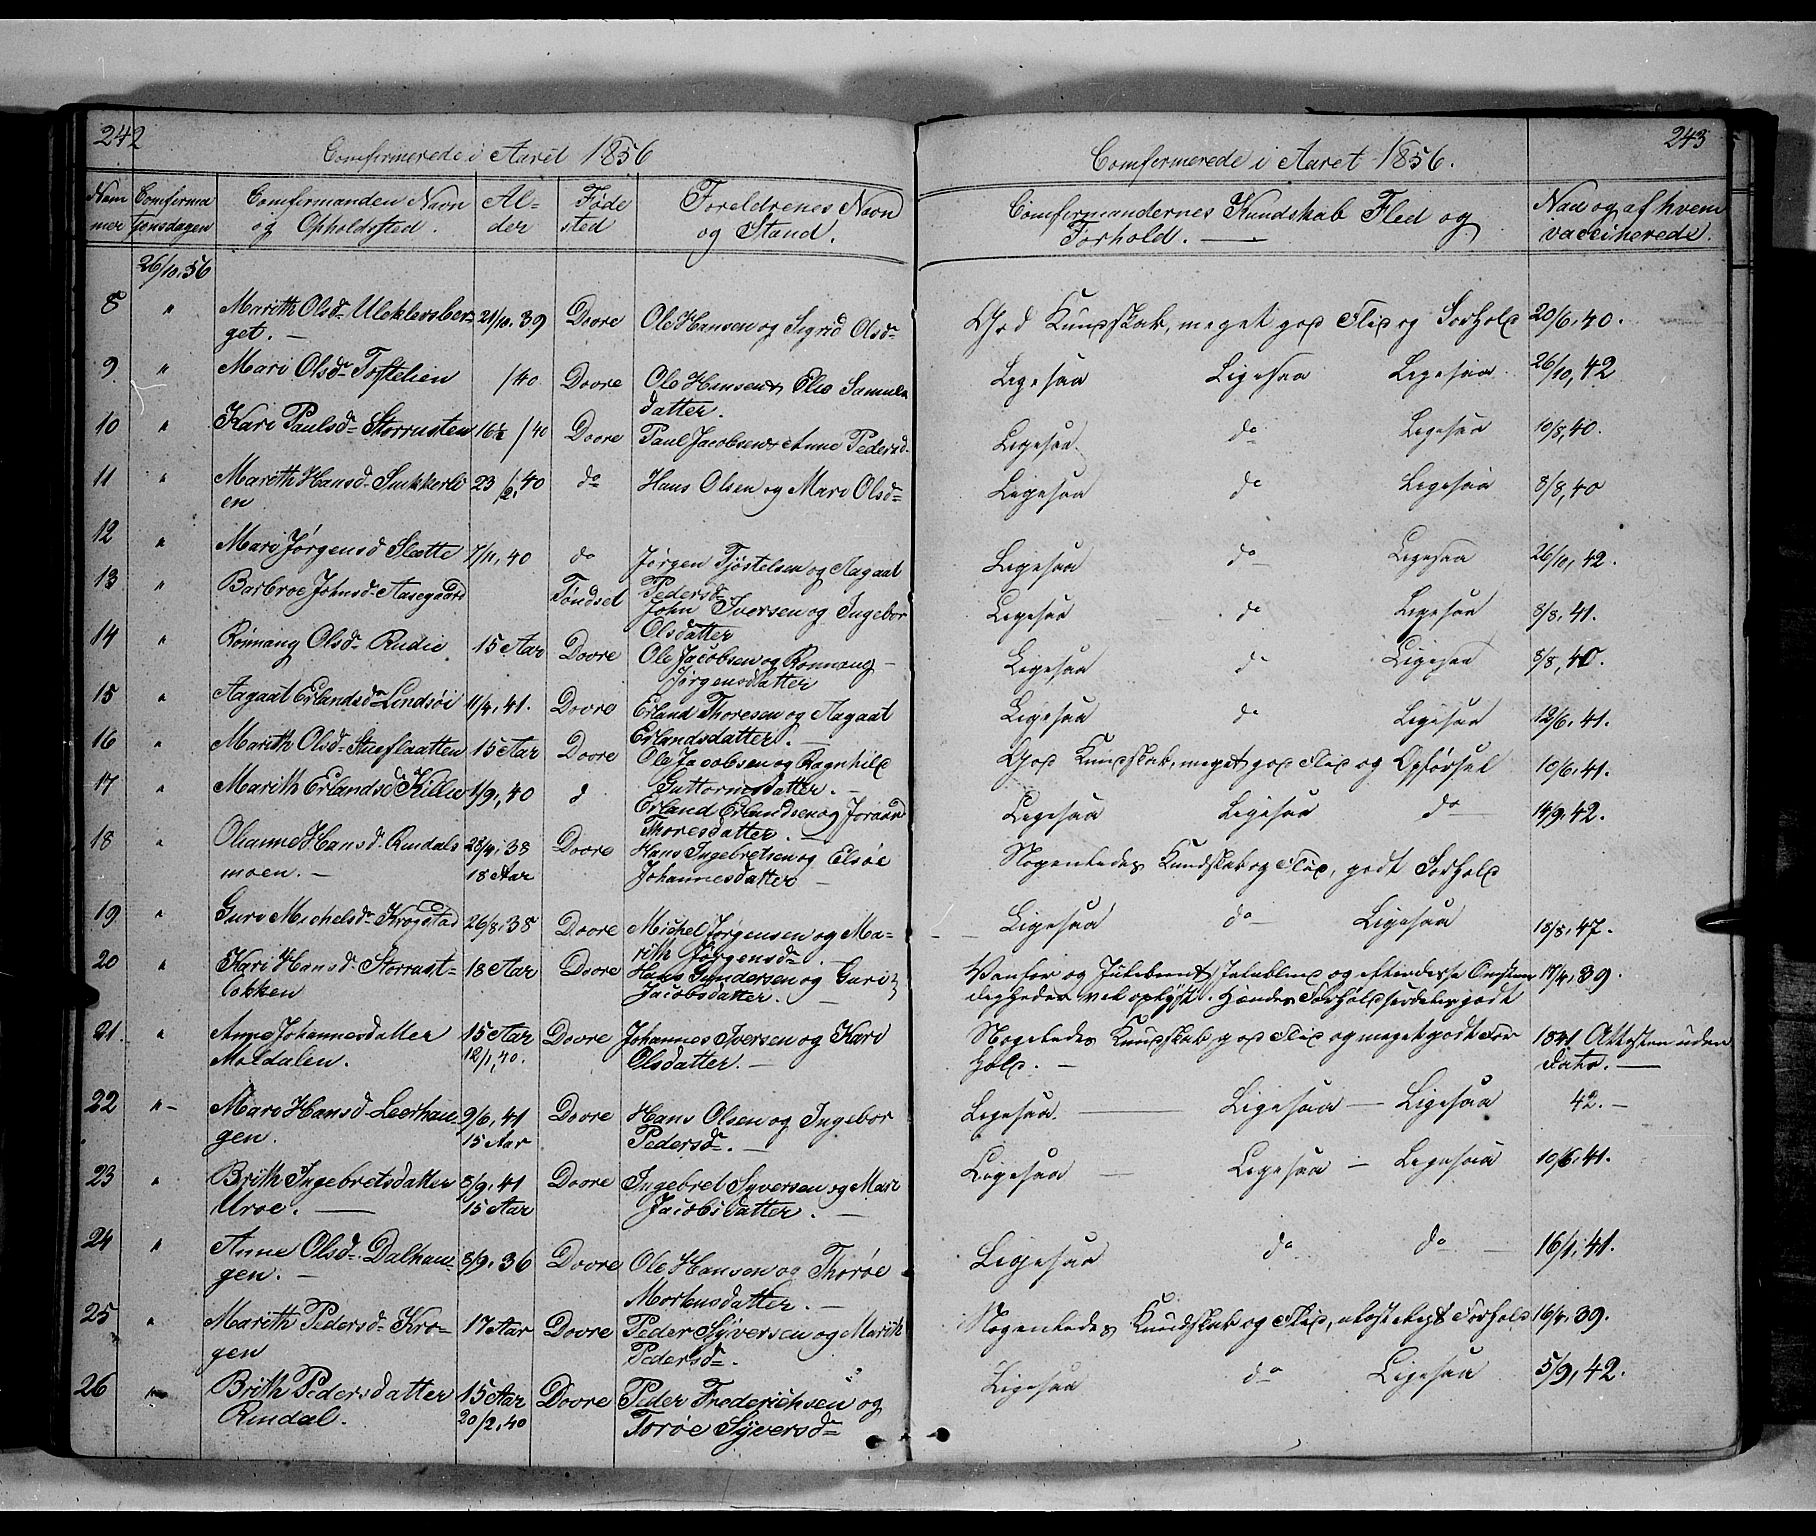 242
Comfermerede i Aaret 1856
Nom mer
Comferma tjonsdagen
Comfermanden Navn og Opholdssted.
Al- der
Føde sted
Foreldrenes Navn og Stand.
26/10, 56
8 " Marith Olsd. 21/10, 39 Dovre Ole Hansen og Sigrid Olsd.
get. -
9 " Mari Olsd. Toftelien /40 Dovre Ole Hansen Samuels
datter.
10 " Kari Paulsd. Storrusten 16½ /40 Dovre Paul Jacobsen Anne Pedersd.
11 " Marith Hansd. 23/2, 40 do Hans Olsen og Mari Olsd.
en
12 " Mari Jørgensd Slette 7/11, 40 do Jørgen Tjøstelsen og Aagaat
Pedersd.
13 " Barbroe Johnsd. Aasegaard Tøndset John Iversen og Ingebor
Olsdatter
14 " Rønnaug Olsd. Rudie 15 Aar Dovre Ole Jacobsen og Rønnaug
Jørgensdatter
15 " Aagaat Erlandsd. Lindsøi 11/4, 41. Dovre Erland Thoresen og Aagaat
Erlandsdatter. -
16 " Marith Olsd. Stueflaatten 15 Aar Dovre Ole Jacobsen og Ragnhild
Guttormsdatter. -
17 " Marith Erlandsd Killie 1/9, 40 d Erland Erlandsen og Joraand
Thoresdatter. -
18 " Olianne Hansd. Rindals 28/4, 38 Dovre Hans Ingebretsen og Elsøe
moen. - 18 Aar Johannesdatter -
19 " Guri Michelsd. Krogstad 26/8, 38 Dovre Michel Jørgensen og Ma-
rith Jørgensd. -
20 " Kari Hansd. Storrust- 18 Aar Dovre Hans Gundersen og Guri
løkken Jacobsdatter. -
21. " Anne Johannesdatter 15 Aar Dovre Johannes Iversen og Kari
Moldalen. 12/1, 40. Olsdatter. -
22 " Mari Hansd. Leerhau- 9/6, 41 Dovre Hans Olsen og Ingebor
gen. 15 Aar Pedersd. -
23 " Brith Ingebretsdatter 8/9, 41 Dovre Ingebret Syversen og Mari
Uroe. 15 Aar Jacobsdatter. -
24 " Anne Olsd. Dalhau- 8/9, 36 Dovre Ole Hansen og Thorøe
gen. - Mortensdatter. -
25 " Marith Pedersd. Kro- 17 Aar Dovre Peder Syversen og Marith
gen Pedersd.
26 " Brith Pedersdatter 15 Aar Dovre Peder Frederichsen og
Rindal. 20/2, 40 Torøe Syversd.
243
Comfermerede i Aaret 1856.
Comfermandernes Kundskab Flid og Forhold. -
Nad og af hvem vaccinerede.
God Kundskab, meget god Flid og Forhold 20/6, 40.
Ligesaa Ligesaa Ligesaa 26/10, 42
Ligesaa. do Ligesaa 10/8, 40.
Ligesaa do Ligesaa 8/8, 40
Ligesaa do Ligesaa 26/10, 42.
Ligesaa do Ligesaa 8/8, 41.
Ligesaa do Ligesaa 8/8, 40.
Ligesaa do Ligesaa 12/6, 41.
God Kundskab, meget god Flid og Opførsel 10/6, 41.
Ligesaa Ligesaa do 14/9, 42.
Nogenledes Kundskab og Flid, godt Forhold
Ligesaa do Ligesaa 18/8, 47.
Vanfør og og efter disse Omstæn 17/4, 39.
digheder vel oplyst. Hendes Forhold særdeles godt
Nogeledes Kundskab, god Flid og meget godt For 1841 Attesten uden
hold. - Dato. -
Ligesaa. - Ligesaa - Ligesaa 42. -
Ligesaa - Ligesaa - Ligesaa 10/6, 41.
Ligesaa do do 16/1, 41.
Nogenledes Kundskab og Flid, Forhold 16/4, 39.
Ligesaa do Ligesaa 5/9, 42.